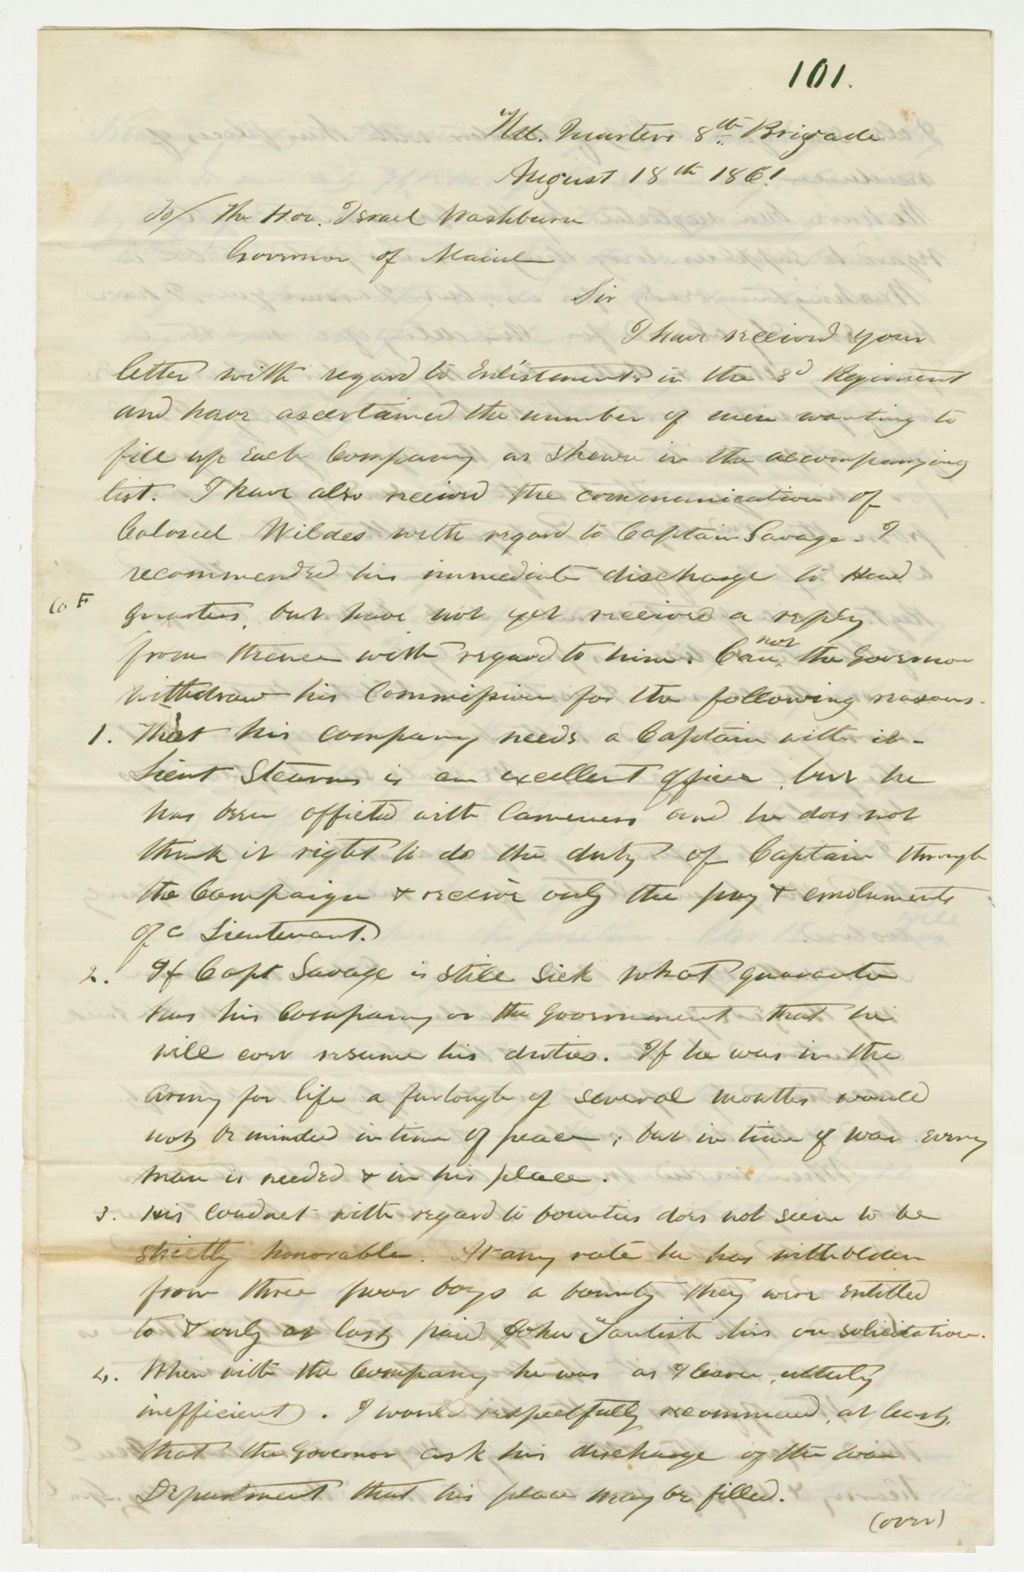 101.
Hd. Quarters 8th Brigade
August 18th 1861
To/ The Hon. Israel Washburn
Governor of Maine
Sir
I have received your
letter with regard to Enlistments in the 3d Regiment
and have ascertained the number of men wanting to
fill up Each Company as shown in the accompanying
list. I have also received the communication of
Colonel Wildes with regard to Captain Savage. I
recommended his immediate discharge to Head
Co F
Quarters, but have not yet received a reply
from thence with regard to him. Can not the Governor
withdraw his Commission for the following reasons.
1. That his company needs a Captain with it -
Lieut Stearns is an excellent officer, but he
has been afflicted with lameness and he does not
think it right to do the duty of Captain through
the Campaign & receive only the pay & emoluments
of a Lieutenant.
2. If Capt Savage is still sick what guarantee
has his Company or the Government that he
will ever resume his duties. If he was in the
army for life a furlough of several months would
not be minded in time of peace, but in time of war every
man is needed & in his place.
3. His conduct with regard to bounties does not seem to be
strictly honorable. At any rate he has witholden
from three poor boys a bounty they were entitled
to & only at last paid John his on solicitation.
4. When with the Company he was as I learn, utterly
inefficient. I would respectfully recommend, at least,
that the Governor ask his discharge of the War
Department that his place may be filled.
(over)